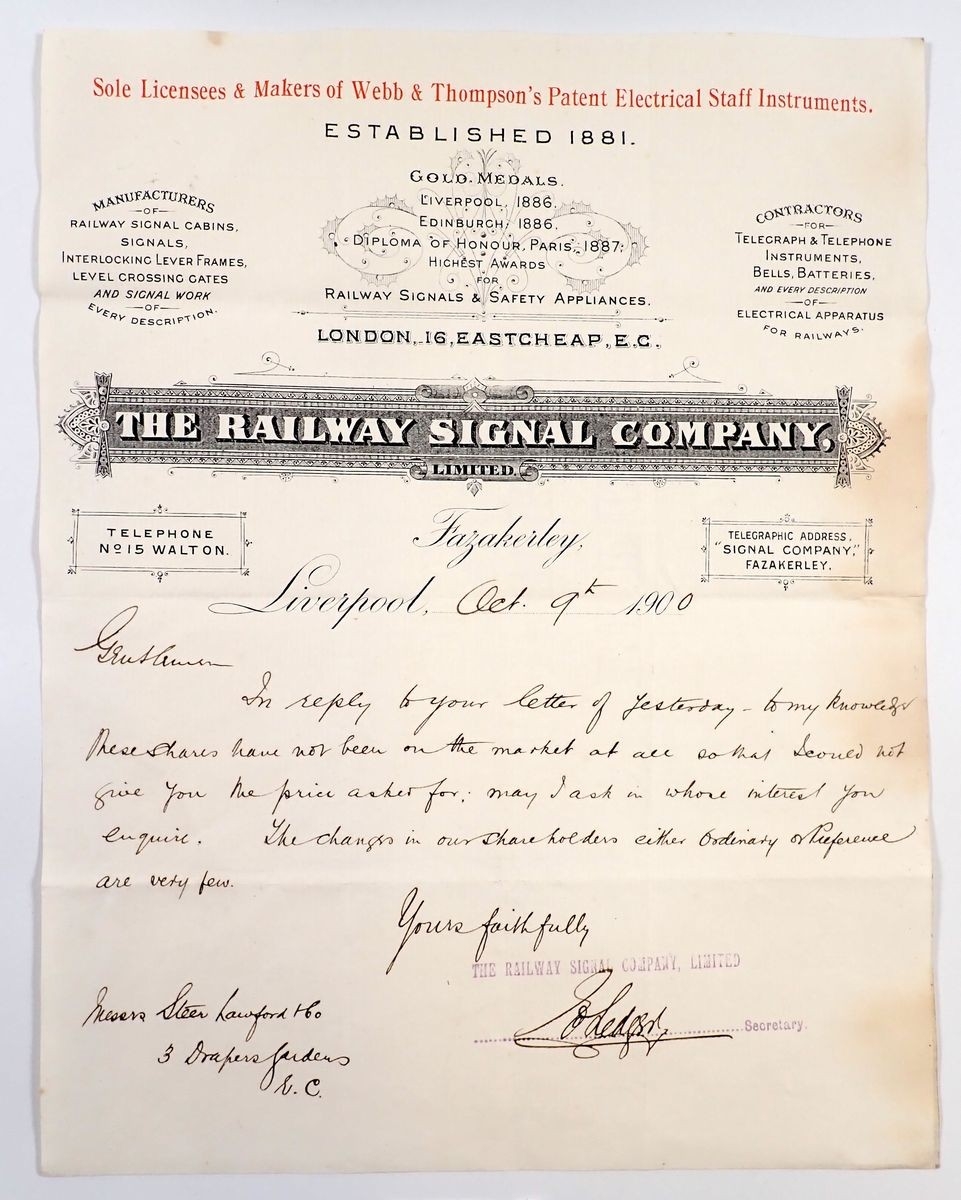 Sole Licensees & Makers of Webb & Thompson's Patent Electrical Staff Instruments.
ESTABLISHED 1881.
GOLD. MEDALS.
LIVERPOOL, 1886.
EDINBURGH, 1886.
DIPLOMA OF HONOUR, PARIS, 1887.
HIGHEST AWARDS
FOR
RAILWAY SIGNALS & SAFETY APPLIANCES.
MANUFACTURERS
-OF-
RAILWAY SIGNAL CABINS,
SIGNALS,
INTERLOCKING LEVER FRAMES,
LEVEL CROSSING GATES
AND SIGNAL WORK
-OF-
EVERY DESCRIPTION.
CONTRACTORS
-FOR-
TELEGRAPH & TELEPHONE
INSTRUMENTS,
BELLS, BATTERIES,
AND EVERY DESCRIPTION
-OF-
ELECTRICAL APPARATUS
FOR RAILWAYS.
LONDON, 16, EASTCHEAP, E.C.
THE RAILWAY SIGNAL COMPANY,
LIMITED.
TELEPHONE
No 15 WALTON.
TELEGRAPHIC ADDRESS,
"SIGNAL COMPANY,"
FAZAKERLEY.
Fazakerley,
Liverpool, Oct. 9th 1900
Gentlemen
In reply to your letter of yesterday - to my knowledge
these shares have not been on the market at all so that I could not
give you the price asked for; may I ask in whose interest you
enquire. The changes in our shareholders either Ordinary or Preference
are very few.
Yours faithfully
THE RAILWAY SIGNAL COMPANY, LIMITED
Secretary.
Messrs Steer Lawford & Co
3 Drapers Gardens
E.C.